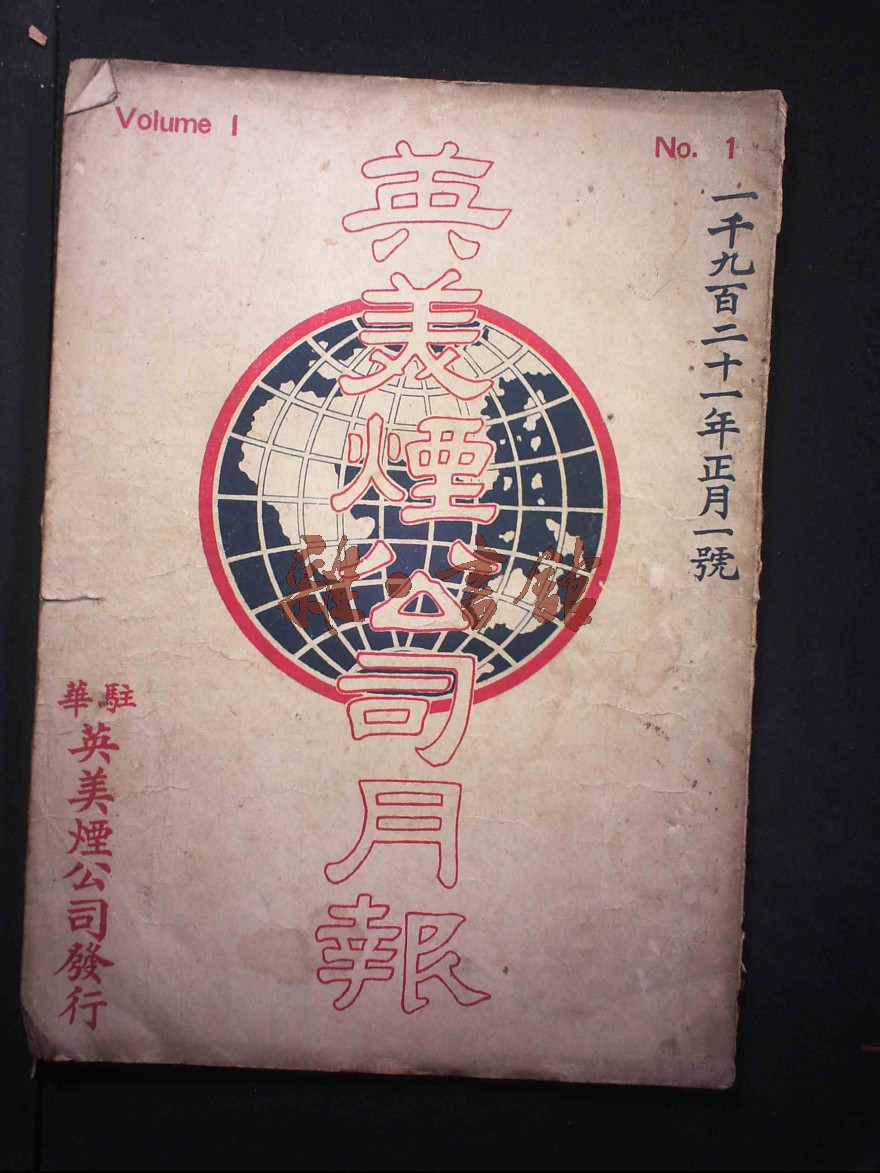 Volume 1
No. 1
一千九百二十一年正月一號
英美煙公司月報
駐華
英美煙公司發行
雜·書館